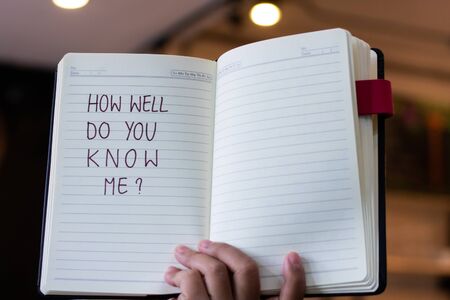 HOW WELL
DO YOU
KNOW
ME?